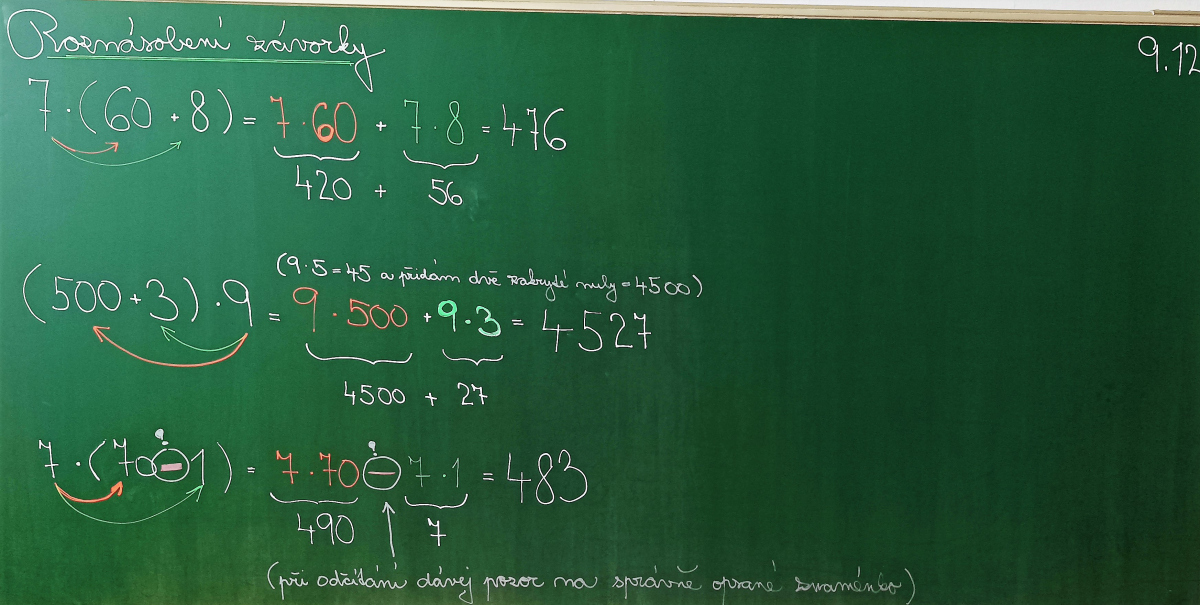 Roznásobení závorky
9.12
7 · (60 + 8) = 7 · 60 + 7 · 8 = 476
420 + 56
(9 · 5 = 45 a přidám dvě zakryté nuly = 4500)
(500 + 3) · 9 = 9 · 500 + 9 · 3 = 4527
4500 + 27
7 · (70 - 1) = 7 · 70 - 7 · 1 = 483
490 7
(při odčítání dávej pozor na správně opsané znaménko)